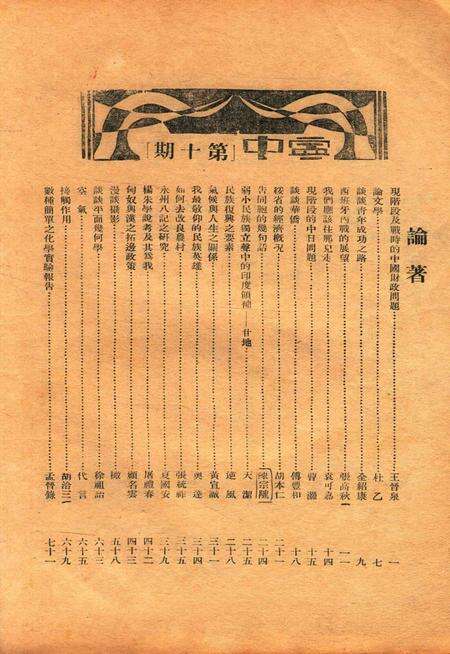 中 [第十期]
論著
現階段及戰時的中國財政問題 王晉泉 一
論文學 杜乙 七
談談青年成功之路 全紹康 九
西班牙內戰的展望 張高秋 一一
我們應該往那兒走 袁可嘉 十四
現階段的中日問題 曾灝 十五
談談華僑 傅豐和 十八
綏省的經濟概况 胡本仁 二十一
告同胞的幾句話 陳宗 二十四
弱小民族獨立聲中的印度領袖——甘地 天潔 二十五
民族復興之要素 逆風 二十八
氣候與人生之關係 黃宣 三十一
我最敬仰的民族英雄 達 三十四
如何去改良農村 張毓祥 三十五
永州八記之研究 夏國安 三十九
楊朱學說考及其為我 屠禮春 四十二
匈奴與漢之拓邊政策 顧名雲 四十三
漫談攝影 五十八
談談平面幾何學 徐祖詒 六十三
空氣 代言 六十五
接觸作用 胡治三 六十九
數種簡單之化學實驗報告 孟晉錄 七十一